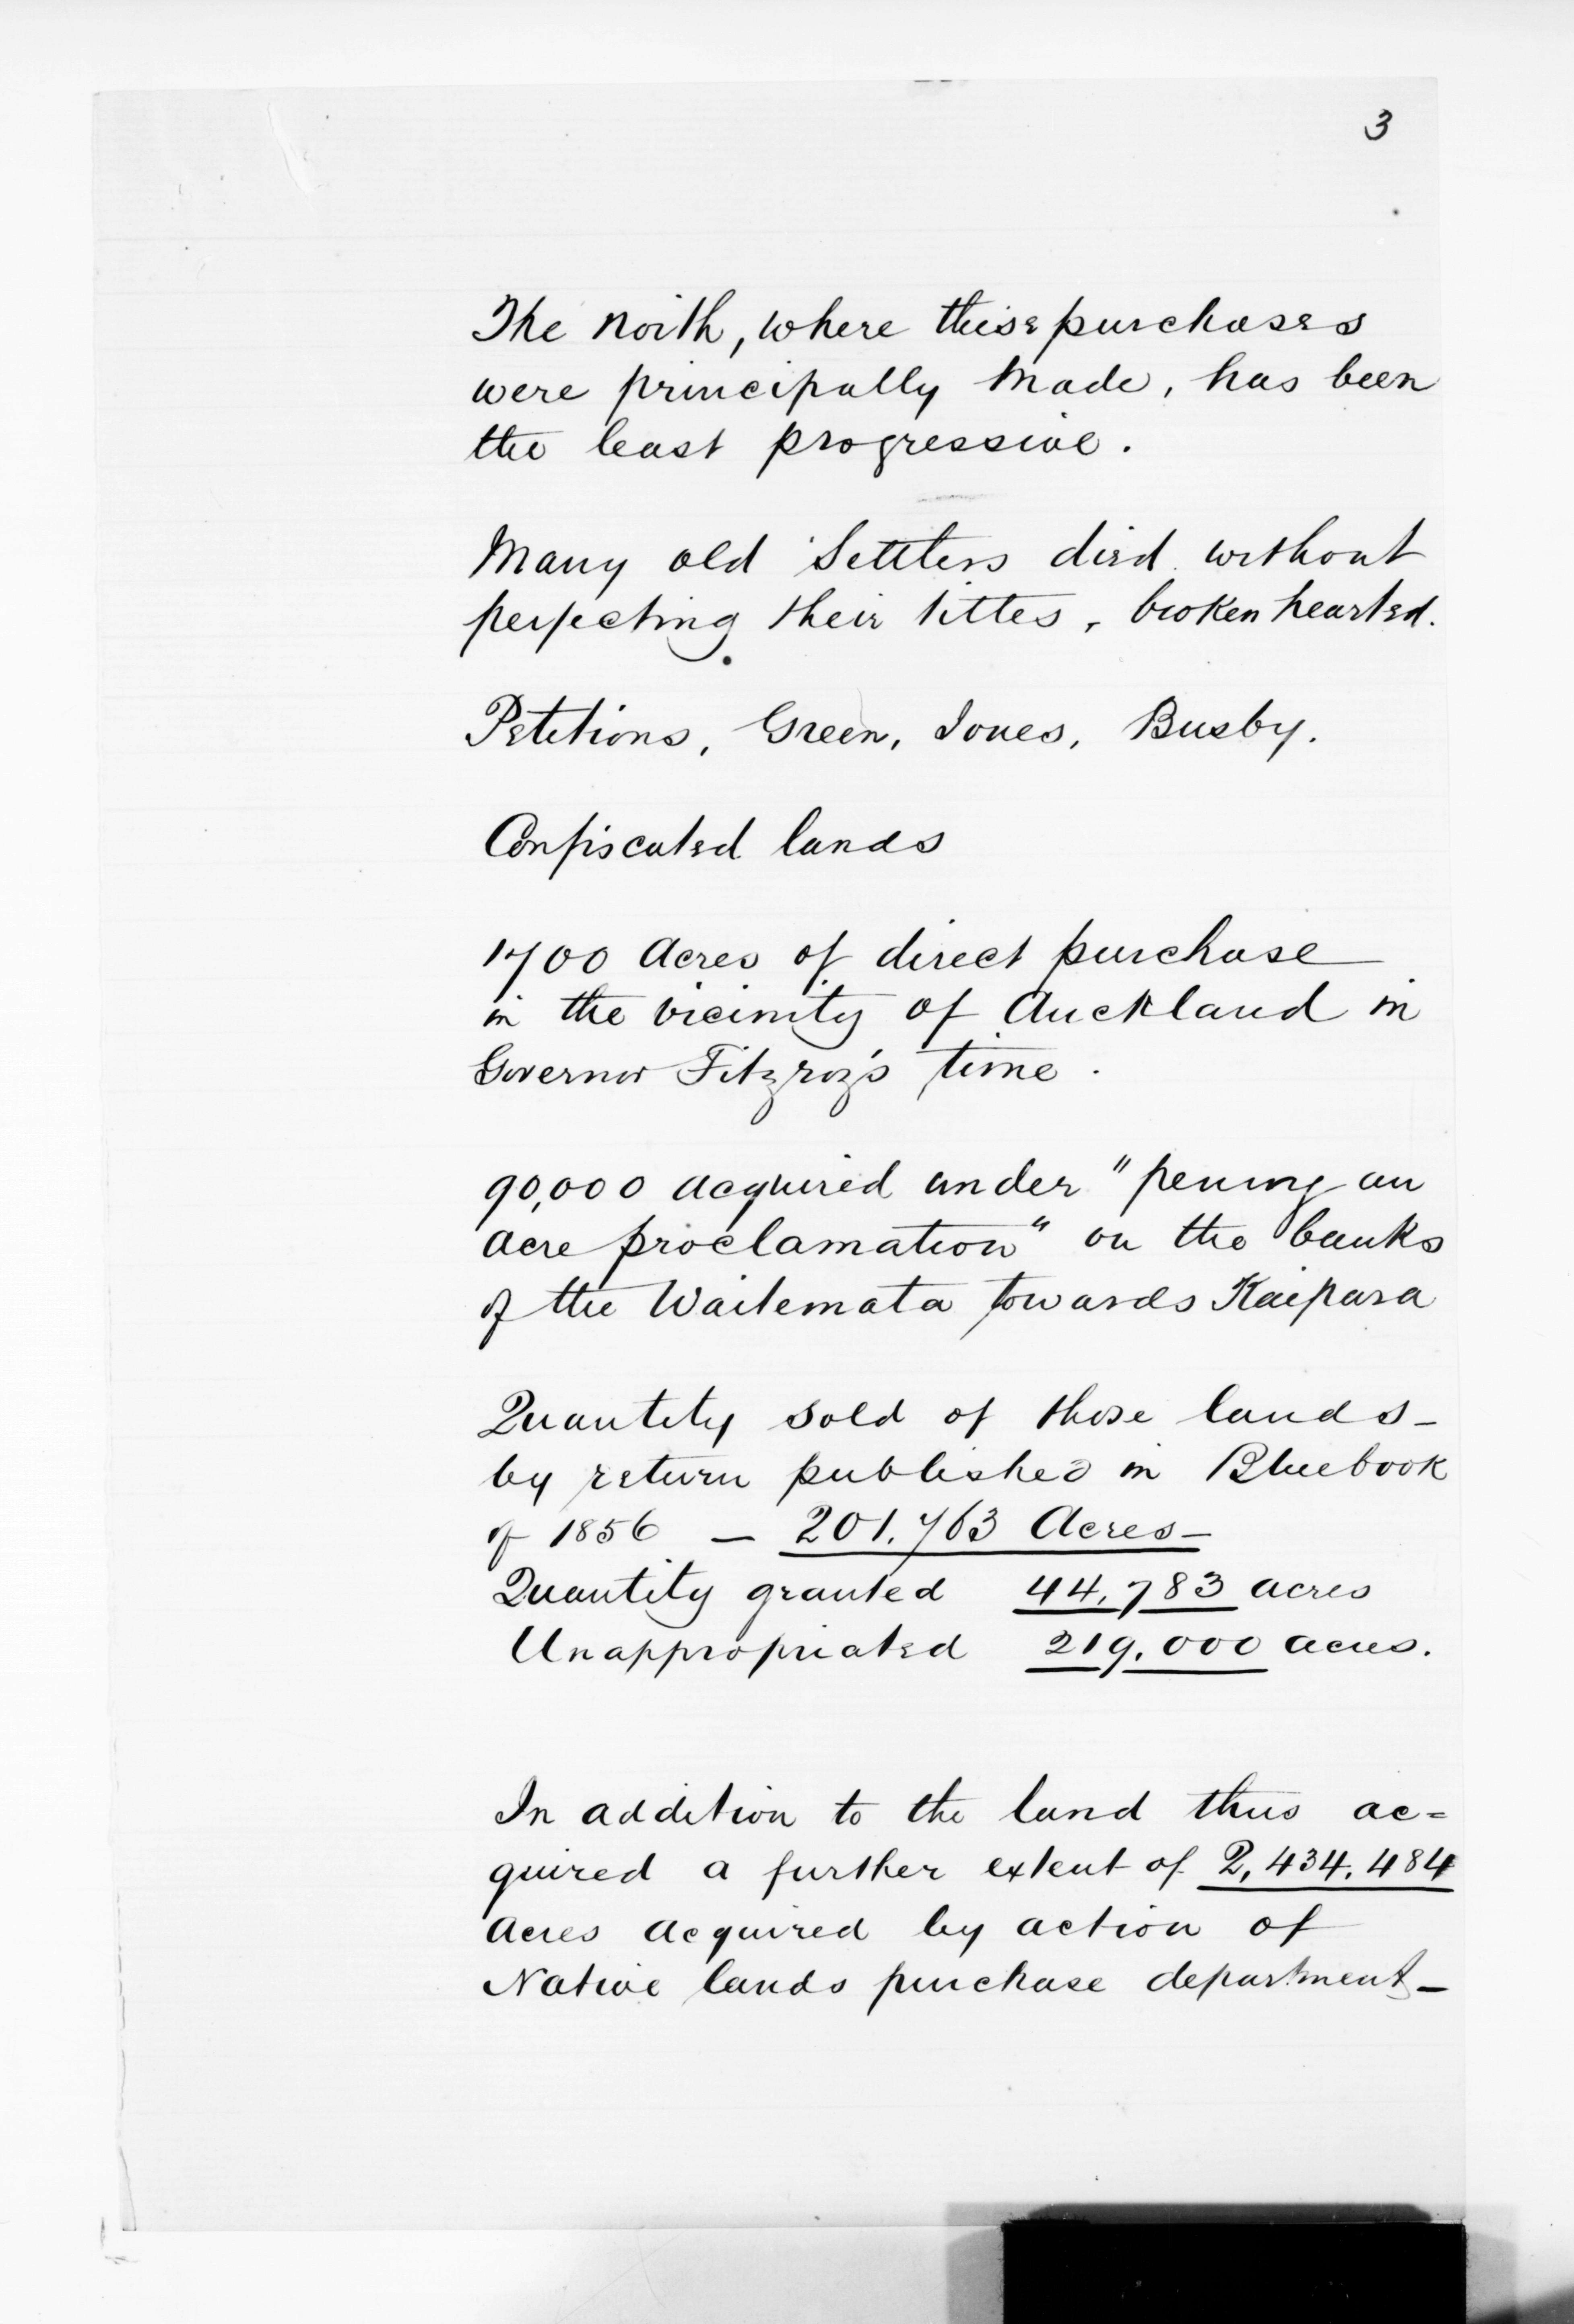 3
The North, where these purchases
were principally made, has been
the least progressive.
Many old Settlers died without
perfecting their titles, broken hearted.
Petitions, Green, Jones, Busby.
Confiscated lands
1700 Acres of direct purchase
in the vicinity of Auckland in
Governor Fitzroy's time.
90,000 acquired under "penny an
acre proclamation" on the banks
of the Waitemata towards Kaipara
Quantity sold of those lands -
by return published in Bluebook
of 1856 — 201,763 Acres -
Quantity granted 44,783 acres
Unappropriated 219,000 acres.
In addition to the land thus ac=
quired a further extent of 2,434,484
acres acquired by action of
Native lands purchase department -